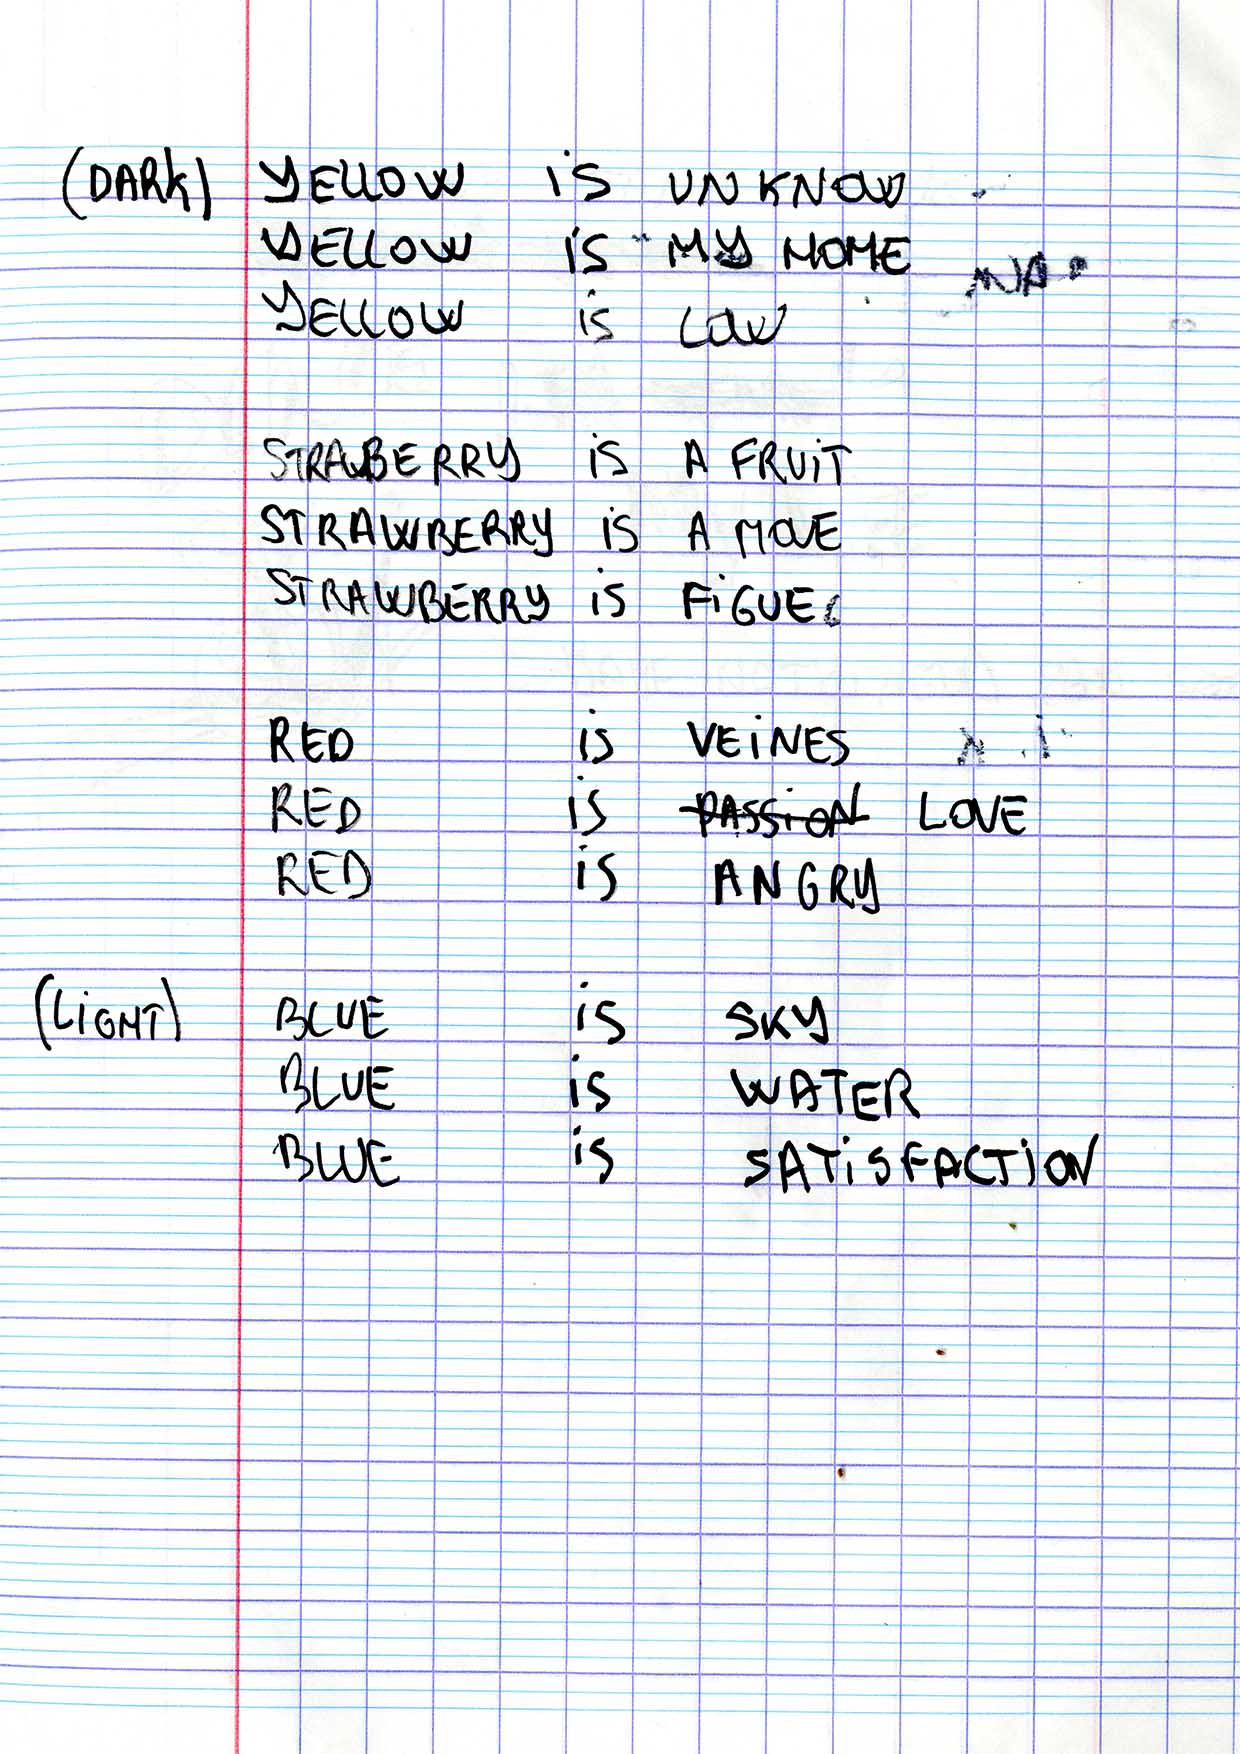 (DARK) YELLOW iS UNKNOW
YELLOW iS MY HOME
YELLOW iS LOW
STRAWBERRY iS A FRUiT
STRAWBERRY iS A MOVE
STRAWBERRY iS FiGUE
RED iS VEiNES
RED iS PASSiON LOVE
RED iS ANGRY
(LiGHT) BLUE iS SKY
BLUE iS WATER
BLUE iS SATiSFACTiON